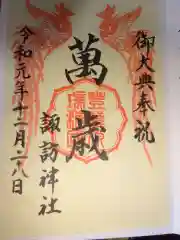 御大典奉祝
萬歳
諏訪神社
令和元年十一月二八日